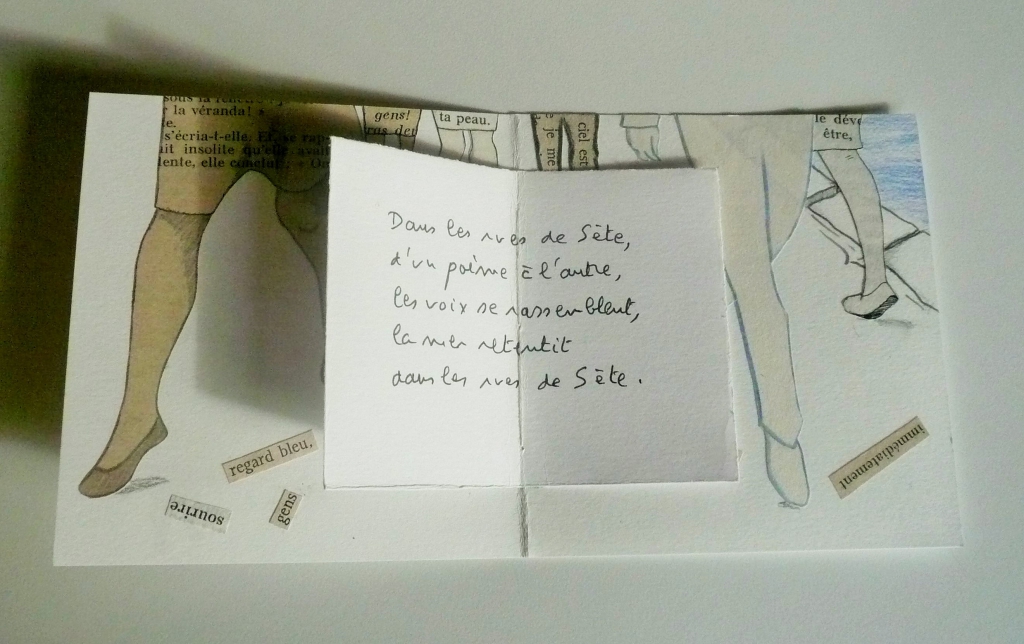 sous la
r la véranda! »
te.
s'écria-t-elle. Et, se rap-
uit insolite qu'elle avait
lente, elle conclut : « On
gens!
ras det
ta peau.
e je me
ciel est
le dév
être,
Dans les rues de Sète,
d'un poème à l'autre,
les voix se rassemblent,
la mer retentit
dans les rues de Sète.
regard bleu,
sourire
gens
immédiatement